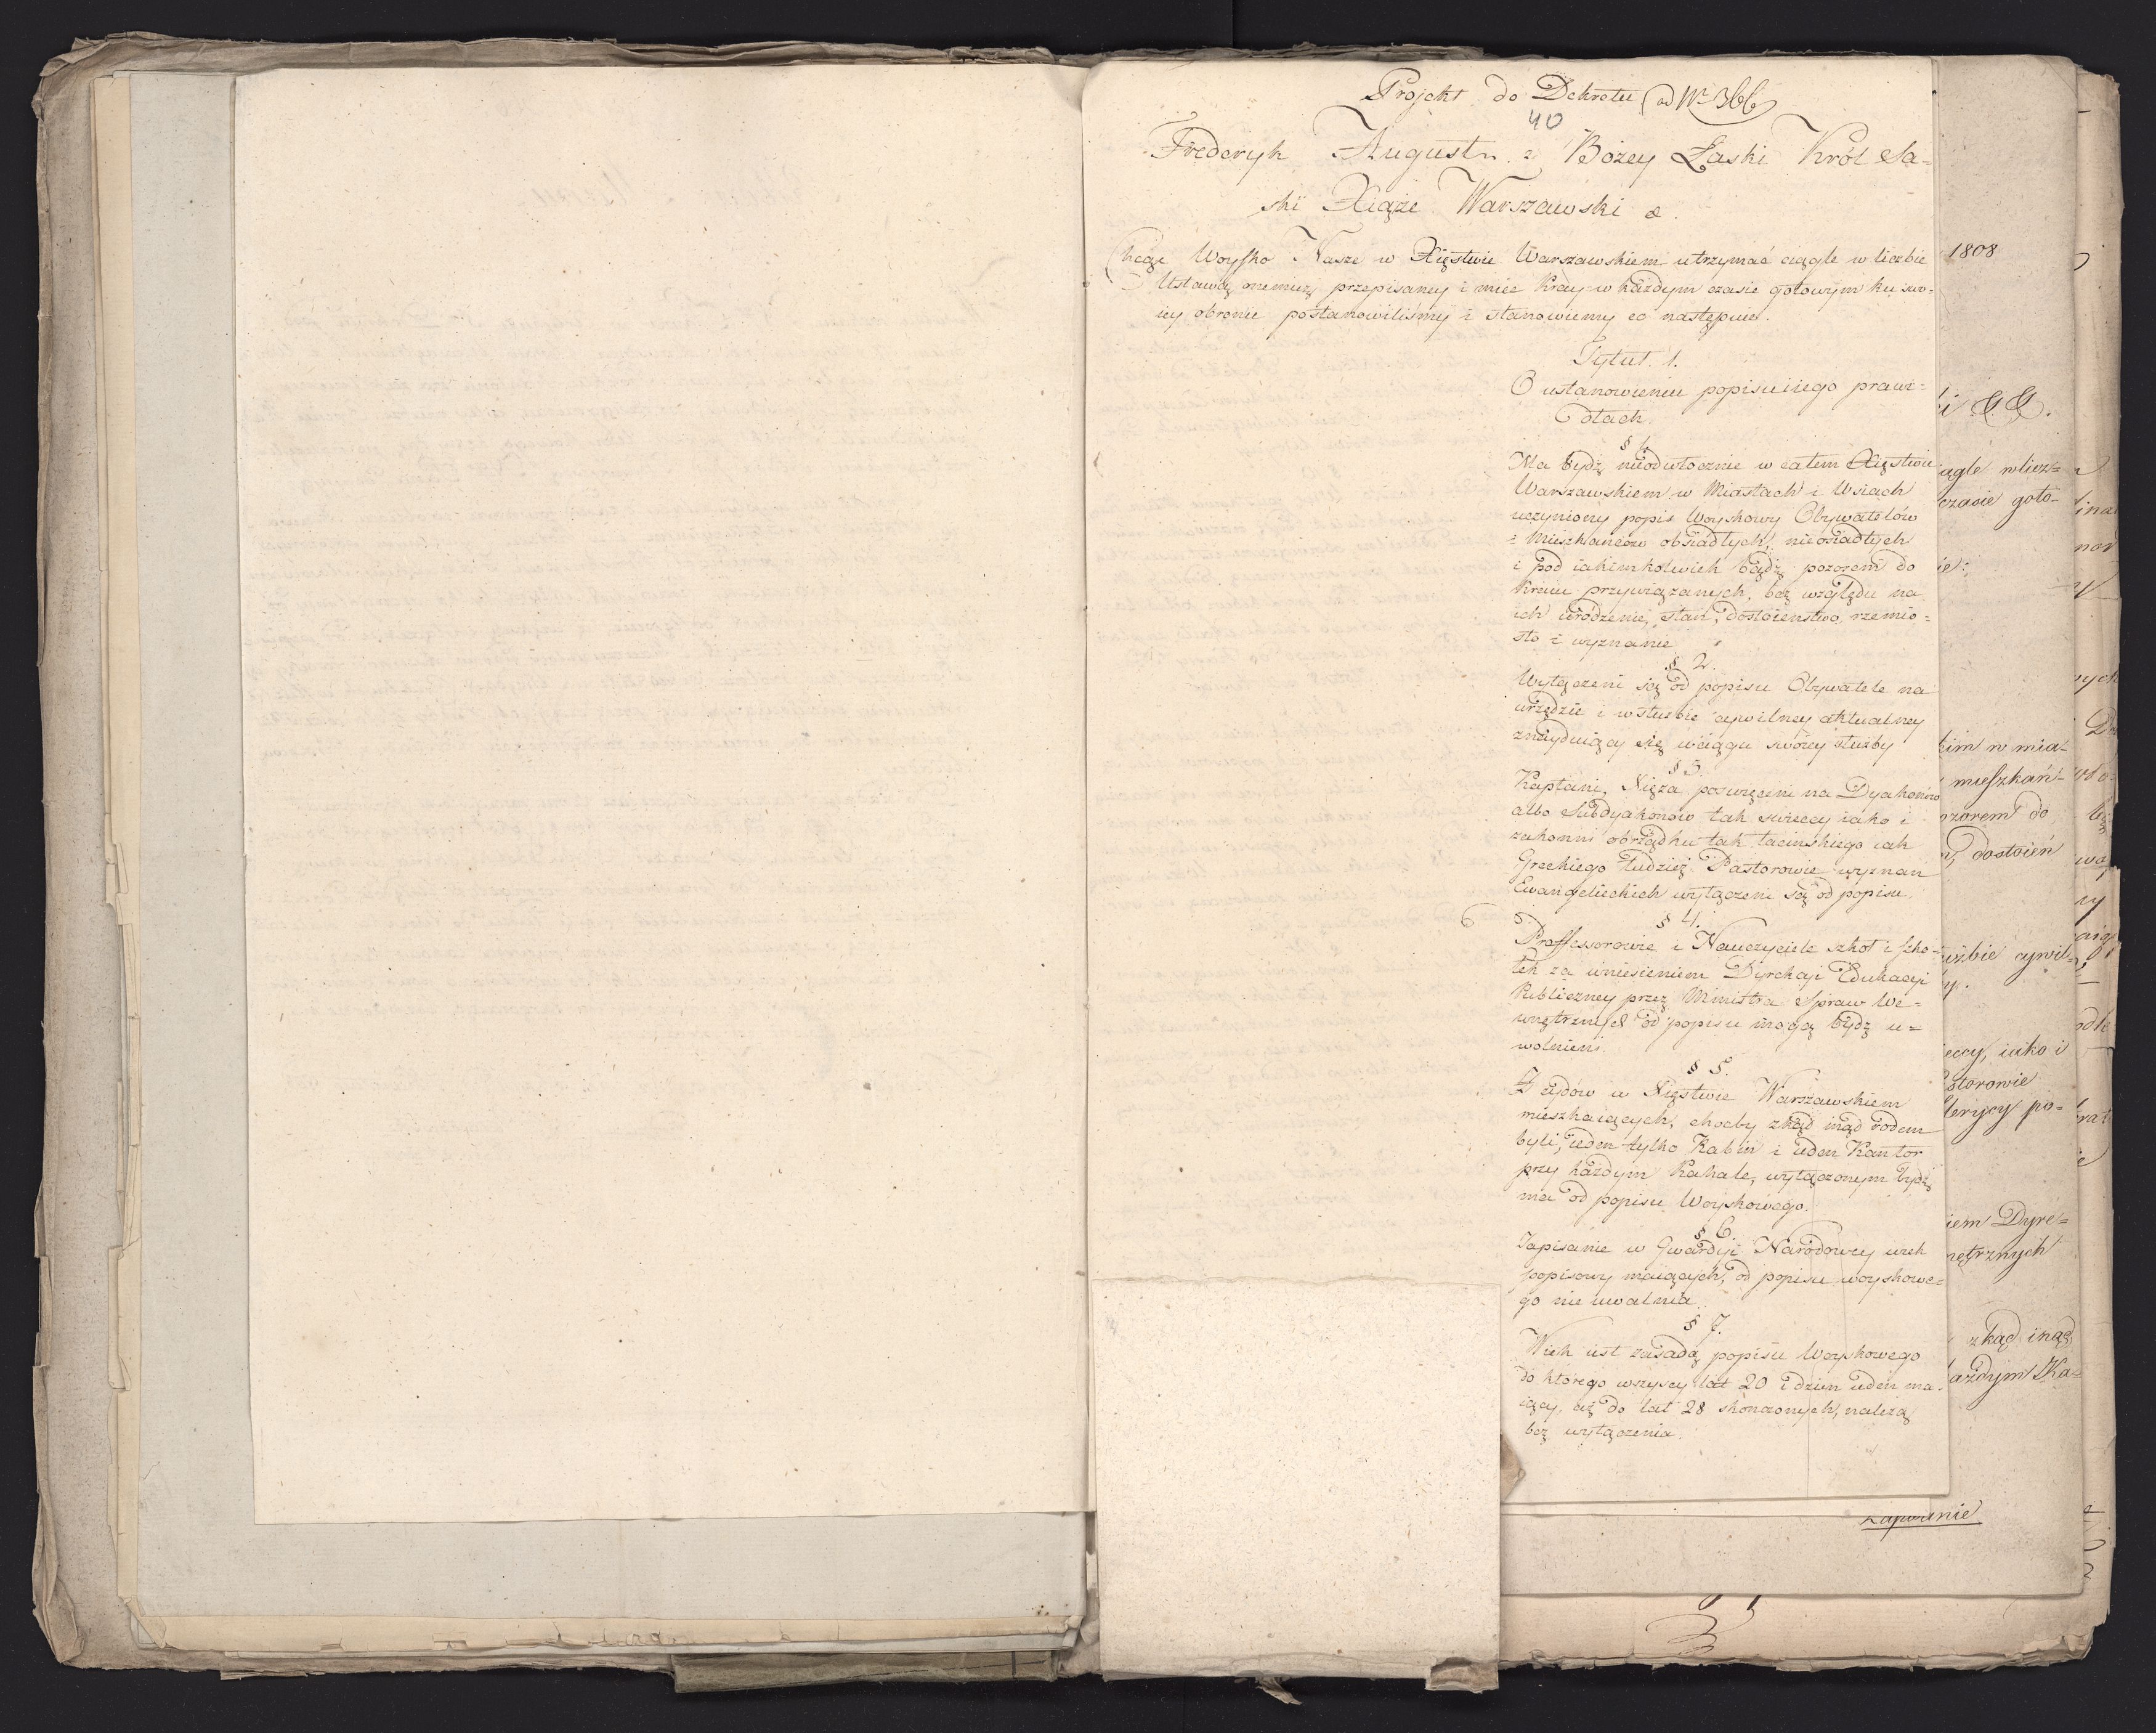 Projekt do Dekretu ad Nr 366
40
Frederyk August z Bożey Łaski Król Sa=
ski Xiąże Warszawski &.
Chcąc Woysko Nasze w Xięstwie Warszawskiem utrzymać ciągle w liczbie
Ustawą onemuż przepisaney i mieć Kray w każdym czasie gotowym ku swo=
iey obronie postanowiliśmy i stanowiemy co następuie.
Tytuł 1.
O ustanowieniu popisu i iego prawi=
dłach.
§ 1.
Ma bydź nieodwłocznie w całem Xięstwie
Warszawskiem w Miastach i Wsiach
uczyniony popis Woyskowy Obywatelów
i Mieszkańców obsiadłych, nieosiadłych
i pod iakimkolwiek bądź pozorem do
Kraiu przywiązanych, bez względu na
ich urodzenie, stan, dostoieństwo, rzemio=
sło i wyznanie
§ 2.
Wyłączeni są od popisu Obywatele na
urzędzie i w służbie cywilney aktualney
znayduiący się w ciągu swoiey służby
§ 3.
Kapłani, Xięża poswięceni na Dyakonów
albo Subdyakonów tak swieccy iako i
zakonni obrządku tak łacinskiego iak
Greckiego tudzież Pastorowie wyznan
Ewangelickich wyłączeni są od popisu.
§ 4.
Proffessorowie i Nauczyciele szkoł i szko=
łek za wniesieniem Dyrekcyi Edukacyi
Publiczney przez Ministra Spraw We=
wnętrznych od popisu mogą bydź u=
wolnieni
§ 5.
Z żydów w Xięstwie Warszawskiem
mieszkaiących, choćby zkąd inąd rodem
byli, ieden tylko Rabin i ieden Kantor
przy każdym Kahale, wyłączonym bydź
ma od popisu Woyskowego.
§ 6.
Zapisanie w Gwardyi Narodowey wiek
popisowy maiących, od popisu woyskowe=
go nie uwalnia
§ 7.
Wiek iest zasadą popisu Woyskowego
do którego wszyscy lat 20 i dzien ieden ma=
iący, aż do lat 28 skończonych, należą
bez wyłączenia.
1808
ki & &.
iągle w licz=
czasie goto-
ie:
kim w mia=
mieszkań=
ozorem do
dostoień
użbie cywil=
y.
ieccy, iako i
storowie
lerycy po=
iem Dyre=
nętrznych
zkąd inąd
każdym Ka=
Zapisanie